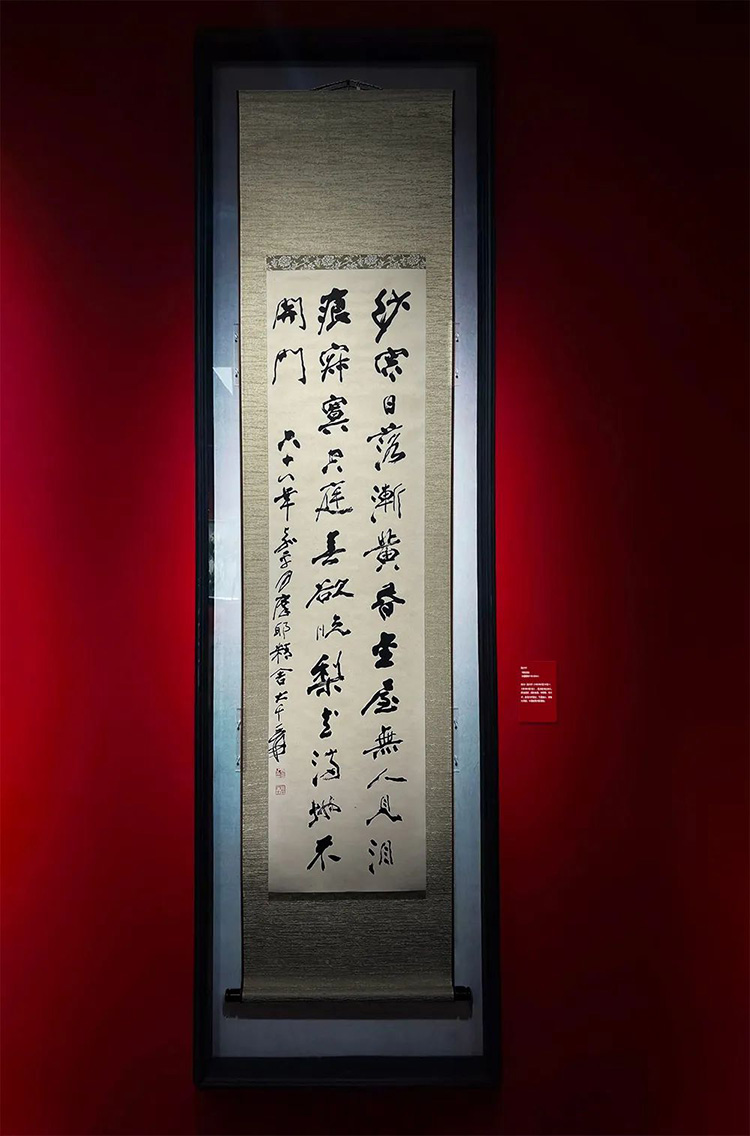 紗窗日落漸黃昏金屋無人見泪
痕寂寞空庭春欲晚梨花滿地不
開門
六十八年嘉平月摩耶精舍大千爰